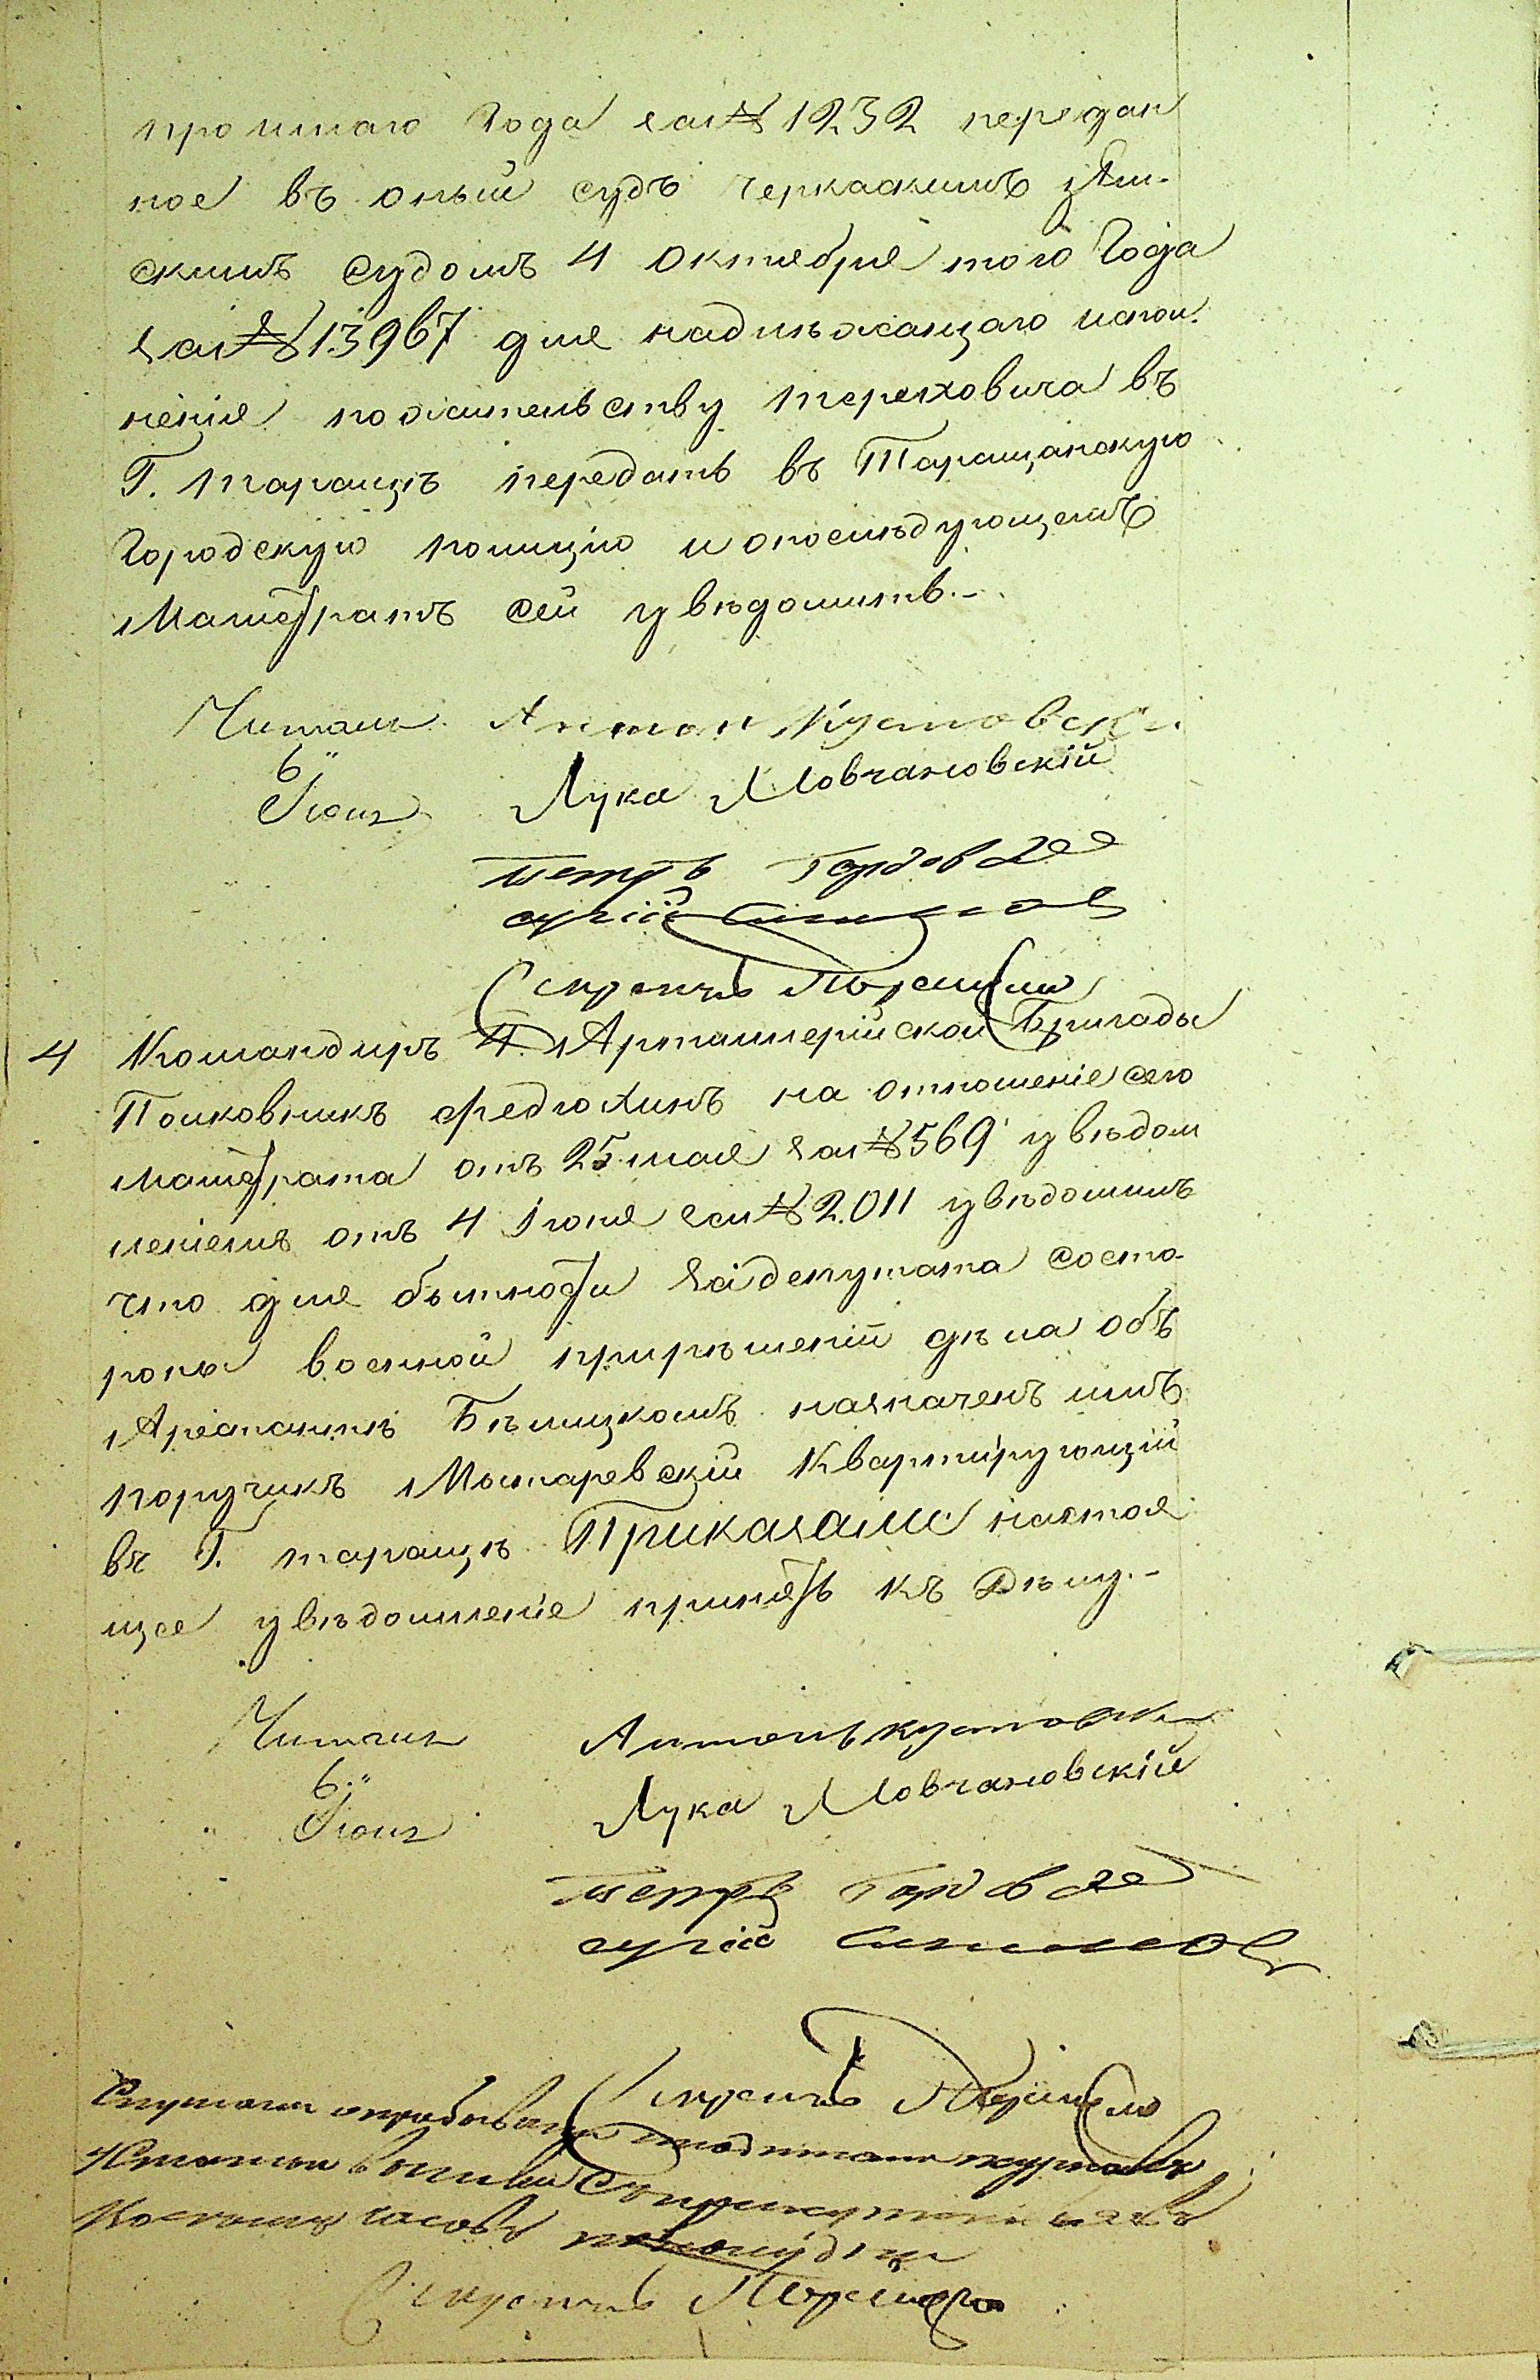 прошлаго Года за № 1232 передан
ное въ оный судъ Черкаскимъ Зем-
скимъ судомъ 4 Октября того Года
за № 13967 для надлѣжащаго испол.
ненія пожительству Тереховича въ
Г. Таращѣ передать въ Таращанскую
Городскую полицію и опослѣдующемъ
Магистратъ сей увѣдомить.-
Читалъ Антон Кутовски
6
Іюня Лука Мовчановскій
Петръ
Секретарь
4 Командиръ 4. Артиллерійской Бригады
Полковникъ Федюхинъ на отношеніе сего
Магистрата отъ 25 мая за № 569 увѣдом
леніемъ отъ 4 Іюня за № 2.011 увѣдомилъ
что для бытности за депутата состо-
роны военной прирѣшеніи дѣла объ
Арестантѣ Бѣлицкомъ назначенъ имъ
поручикъ Мытаревскій Квартирующій
въ Г. Таращѣ Приказали настоя
щее увѣдомленіе принять къ Дѣлу.-
Читалъ Антонъ Кутовски
6
Іюня Лука Мовчановскій
Петръ
Секретарь
часовъ
Секретарь